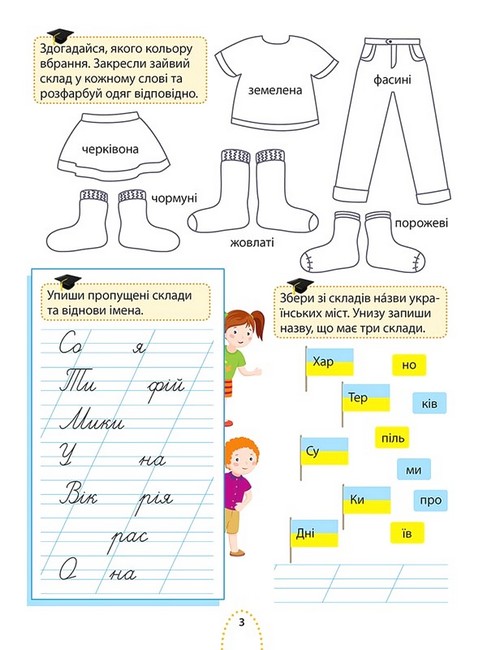 Здогадайся, якого кольору
вбрання. Закресли зайвий
склад у кожному слові та
розфарбуй одяг відповідно.
земелена
фасині
черківона
чормуні
жовлаті
порожеві
Упиши пропущені склади
та віднови імена.
Со я
Ти фій
Мики
У на
Вік рія
рас
О на
Збери зі складів на́зви укра-
їнських міст. Унизу запиши
назву, що має три склади.
Хар
но
Тер
ків
піль
Су
ми
Ки
про
Дні
їв
3